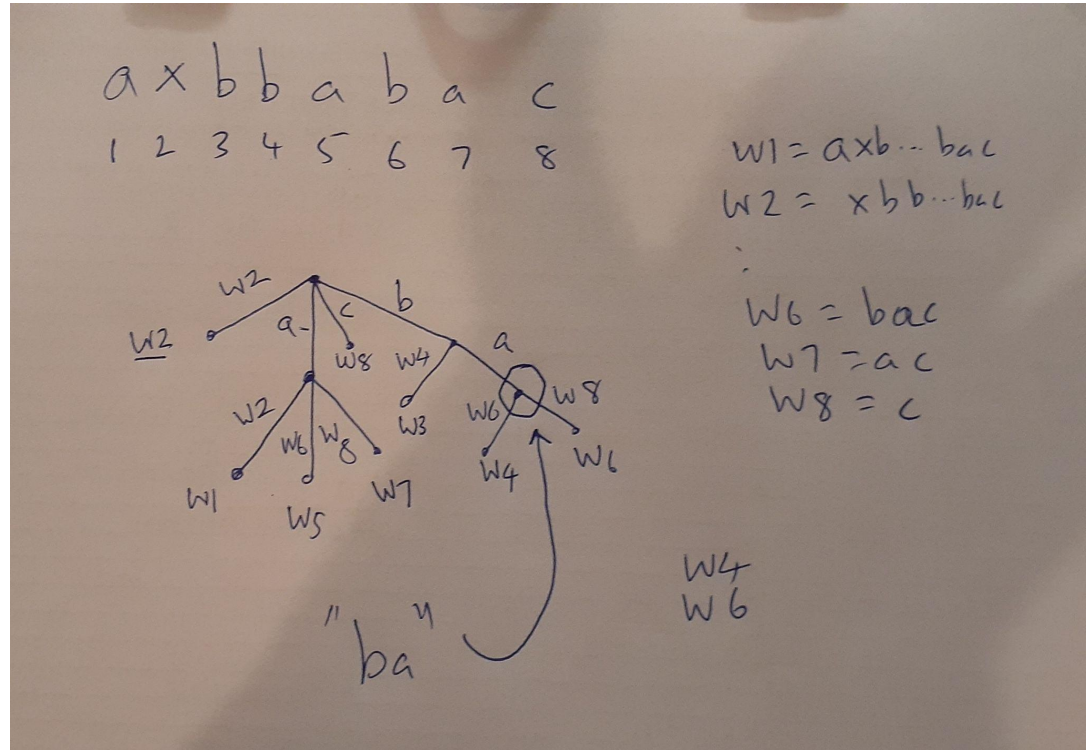 a x b b a b a c
1 2 3 4 5 6 7 8
W1 = axb...bac
W2 = xbb...bac
:
W6 = bac
W7 = ac
W8 = c
W2
b
c
a
W2
W8
W4
a
W2
W6
W8
W3
W6
W8
W1
W5
W7
W4
W6
W4
W6
"ba"